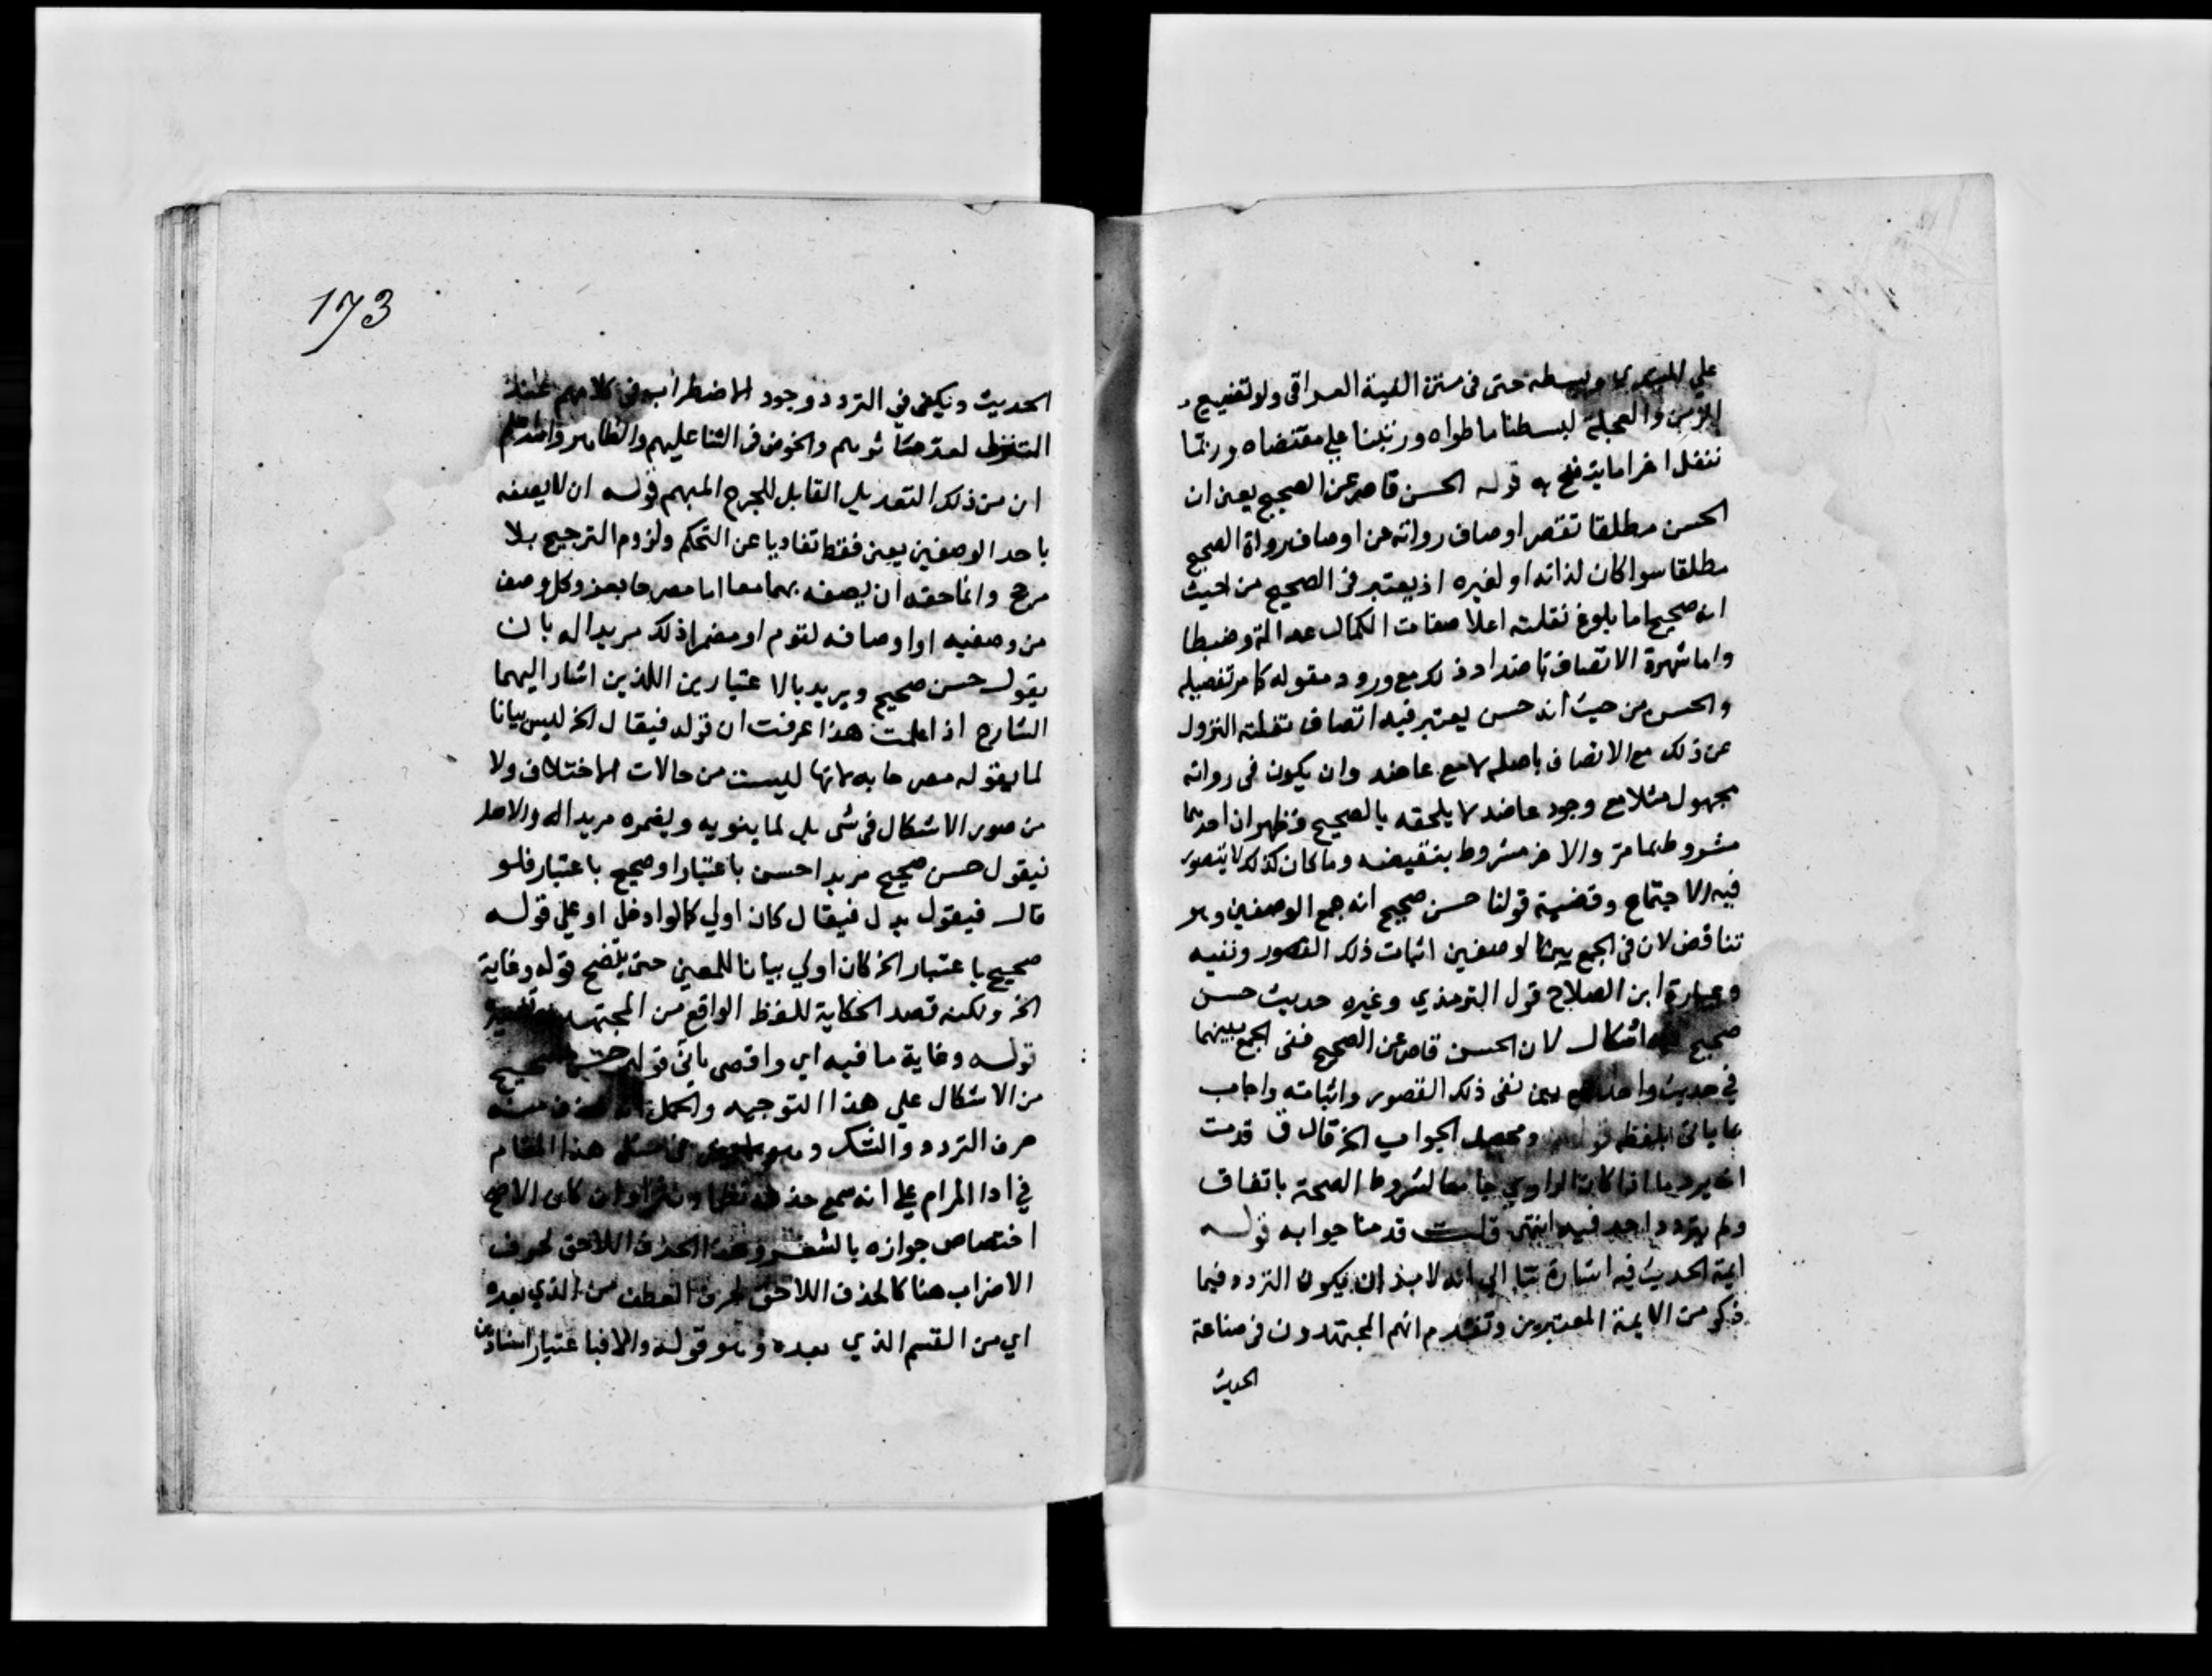 علي المبتدي وبسطه حتى في متن الفية العراقي ولو تفسيح
الزمن والعجلة لبسطنا ما طواه ورتبنا علي مقتضاه وربما
ننقل اخرا ما يتضح به قوله الحسن قاصر عن الصحيح يعني ان
الحسن مطلقا تقصر اوصاف رواته عن اوصاف رواة الصحيح
مطلقا سوا كان لذاته او لغيره اذ يعتبر في الصحيح من حيث
انه صحيح اما بلوغ نقلته اعلا صفات الكمال عدالة وضبطا
واما شهرة الاتصاف باضداد ذلك مع ورود مقوله كما مر تفصيله
والحسن من حيث انه حسن يعتبر فيه اتصاف نقلته النزول
عن ذلك مع الاتصاف باصله لا مع عاضد وان يكون في رواته
مجهول مثلا مع وجود عاضد لا يلحقه بالصحيح فظهر ان احدهما
مشروط بما مر والاخر مشروط بنقيضه وما كان كذلك لا يتصور
فيه الاجتماع وقضية قولنا حسن صحيح انه جمع الوصفين وهو
تناقض لان في الجمع بين الوصفين اثبات ذلك القصور ونفيه
وعبارة ابن الصلاح قول الترمذي وغيره حديث حسن
صحيح فيه اشكال لان الحسن قاصر عن الصحيح ففي الجمع بينهما
في حديث واحد جمع بين نفي ذلك القصور واثباته واجاب
بما ياتي بلفظ قوله ومحصل الجواب الخ قال ق قدمت
انه يرد ما اذا كان الراوي جامعا لشروط الصحة باتفاق
ولم يتردد احد فيه انتهى قلت قدمنا جوابه قوله
ايمة الحديث فيه اشارة الي انه لا بد ان يكون التردد فيما
ذكر من الايمة المعتبرين وتقدم انهم المجتهدون في صناعة
الحديث
173
الحديث ويكفي في التردد وجود الاضطراب في كلامهم
لعد والخوض في الثنا عليهم والظاهر
ان من ذلك التعديل القابل للجرح المبهم قوله ان لا يصفه
باحد الوصفين يعني فقط تفاديا عن التحكم ولزوم الترجيح بلا
مرجح وانما حقه ان يصفه بهما معا اما مصرحا بعزو كل وصف
من وصفيه او اوصافه لقوم او مضمرا ذلك مريدا له بان
يقول حسن صحيح ويريد بالاعتبارين اللذين اشار اليهما
الشارح اذا علمت هذا عرفت ان قوله فيقال الخ ليس بيانا
لما يقوله مصرحا به لانها ليست من حالات الاختلاف ولا
من صور الاشكال في شي بل لما ينويه ويضمره مريدا له والاصل
فيقول حسن صحيح مريدا حسن باعتبار او صحيح باعتبار فلو
قال فيقول بدل فيقال كان اولي كما لو ادخل او علي قوله
صحيح باعتبار الخ كان اولي بيانا للمعين حتى يتضح قوله وغاية
الخ ولكنه قصد الحكاية للفظ الواقع من المجتهد
قوله وغاية ما فيه اي واقصى ياتي قوله حسن صحيح
من الاشكال علي هذا التوجيه والحمل انه حذف منه
حرف التردد والشك وهو في مثل هذا المقام
في ادا المرام علي انه سمع حذفه نظما ونثرا وان كان الاصح
اختصاص جوازه بالشعر وهذا الحذف اللاحق لحرف
الاضراب هنا كالحذف اللاحق لحرف العطف من الذي بعده
اي من القسم الذي بعده وهو قوله والا فباعتبار اسنادين